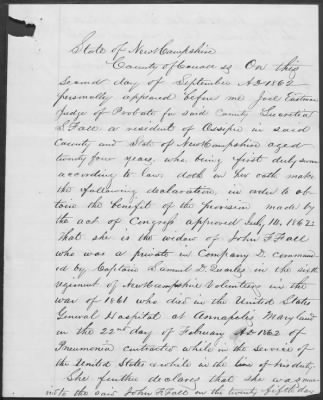 State of New Hampshire
County of Carroll ss On this
second day of September AD 1862
personally appeared before me Joel Eastman
Judge of Probate for said County Lucretia
S. Hall a resident of Ossipee in said
County and State of New Hampshire aged
twenty four years, who being first duly sworn
according to law, doth on her oath make
the following declaration, in order to ob-
tain the benefit of the provision made by
the act of Congress approved July 14, 1862
That she is the widow of John F Hall
who was a private in Company D. command
ed by Captain Samuel D. Quarles in the sixth
regiment of New Hampshire Volunteers in the
war of 1861 who died in the United States
General Hospital at Annapolis Maryland
on the 22nd day of February AD 1862 of
Pneumonia contracted while in the service of
the United States & while in the line of his duty.
She further declares that she was mar-
to the said John F Hall on the twenty fifth day